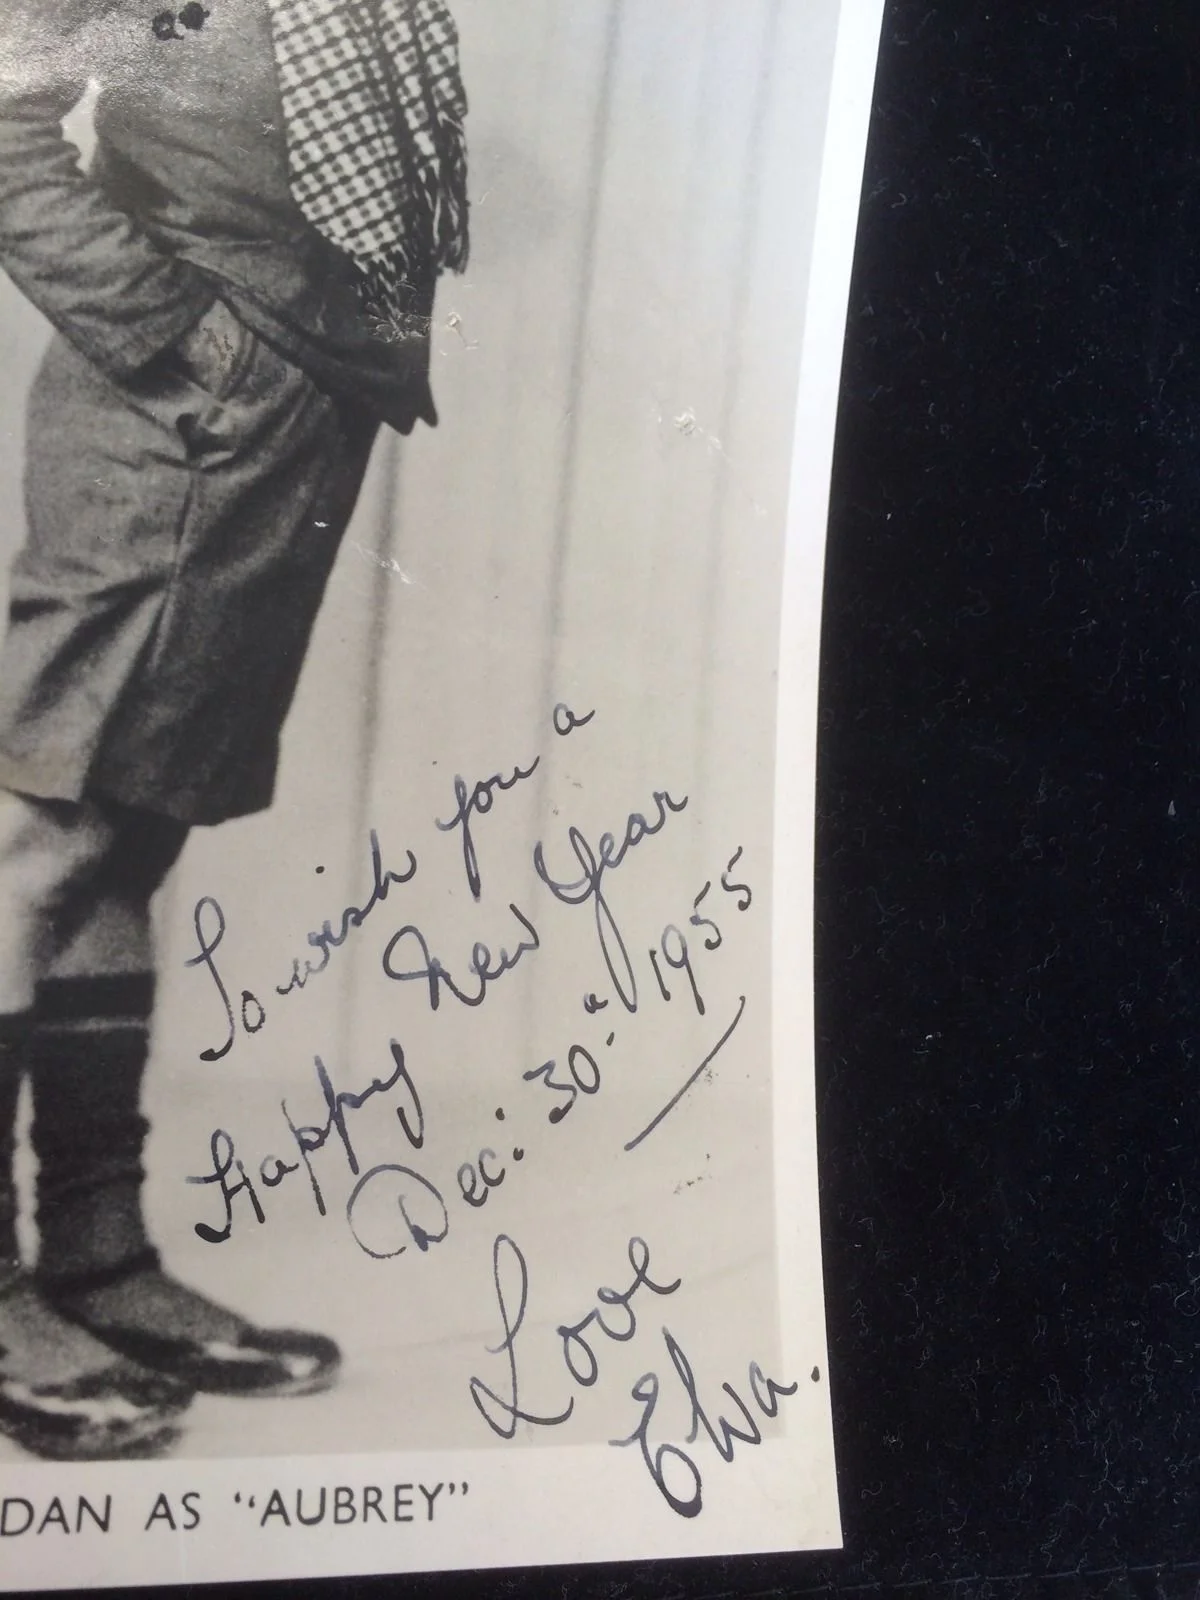 To wish you a
Happy New Year
Dec: 30.a 1955
Love
Elva.
DAN AS "AUBREY"